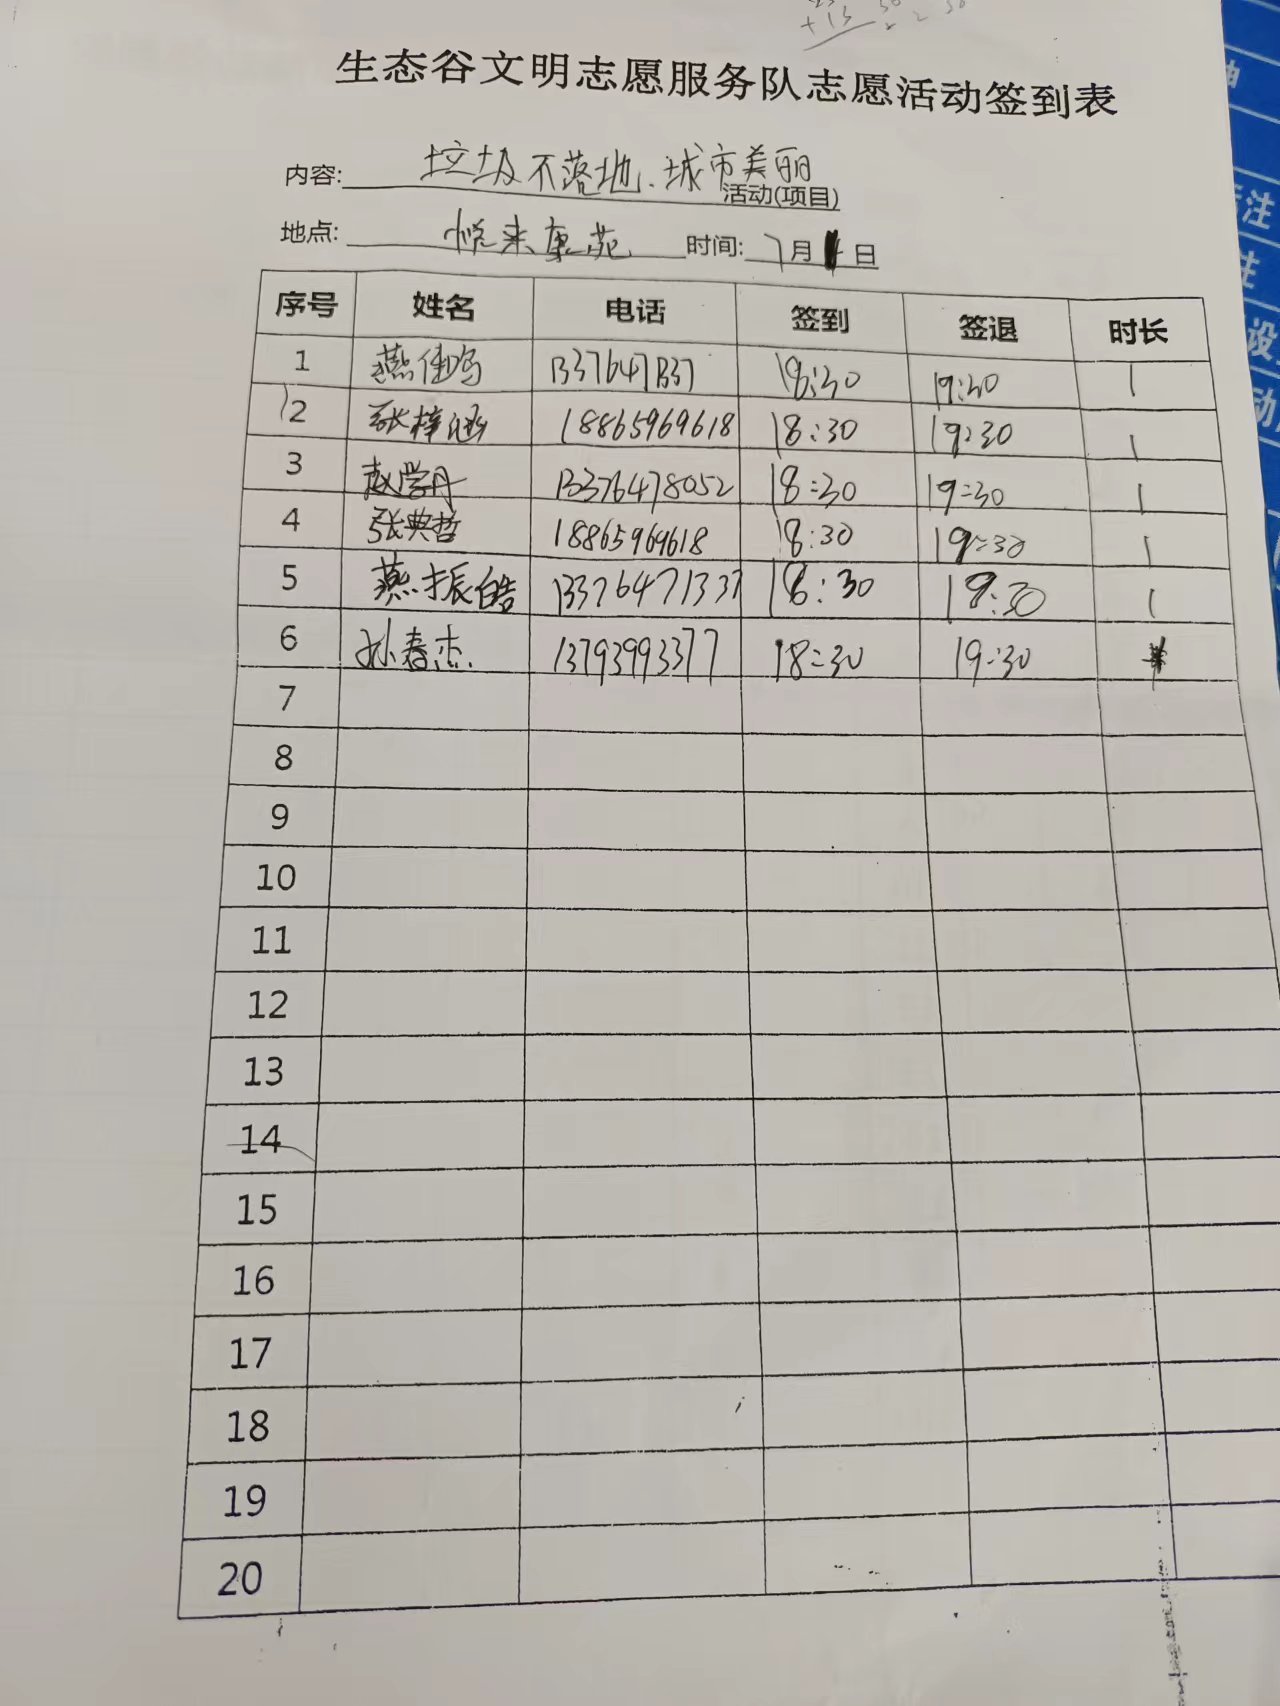 生态谷文明志愿服务队志愿活动签到表
内容: 垃圾不落地.城市美丽 活动(项目)
地点: 悦来康苑 时间: 7月 日
序号 姓名 电话 签到 签退 时长
1 燕佳鸣 13376471337 18:30 19:30 1
2 张梓涵 18865969618 18:30 19:30 1
3 赵学丹 13376478052 18:30 19:30 1
4 张典哲 18865969618 18:30 19:30 1
5 燕振皓 13376471337 18:30 19:30 1
6 孙春杰 13793993377 18:30 19:30
7
8
9
10
11
12
13
14
15
16
17
18
19
20
注
注
设
动